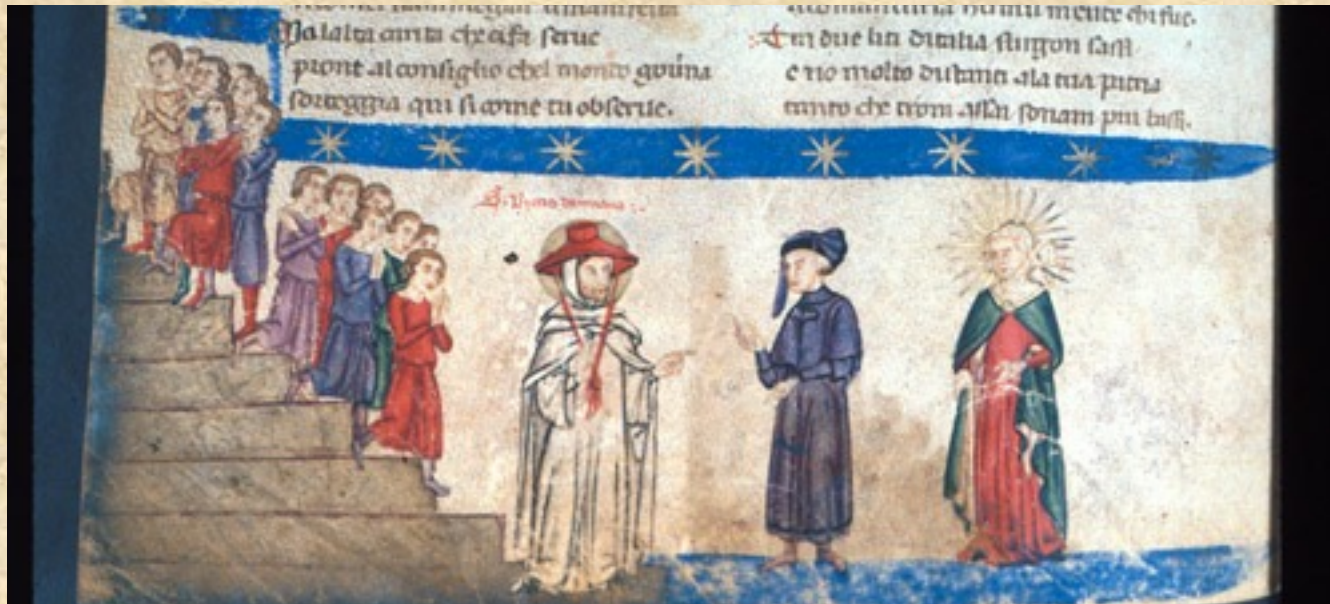 manifesta
Ma lalta carita che cifa serue
pronte al consiglio chel mondo gouīna
sorteggia qui si come tu obserue.
humil mente chi fue.
Tra due liti ditalia surgon sassi
e nō molto distanti ala tua patria
tanto che troni assai sonam piu bassi.
S. Petrus damianus